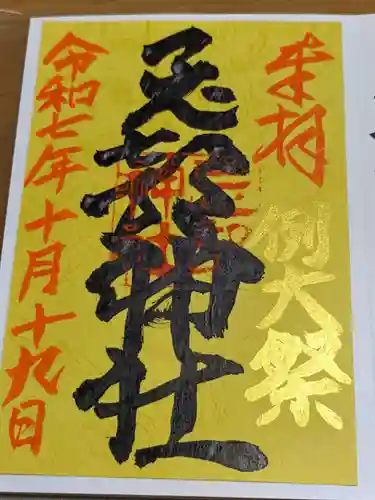 奉拝
例大祭
忌部神社
令和七年十月十九日